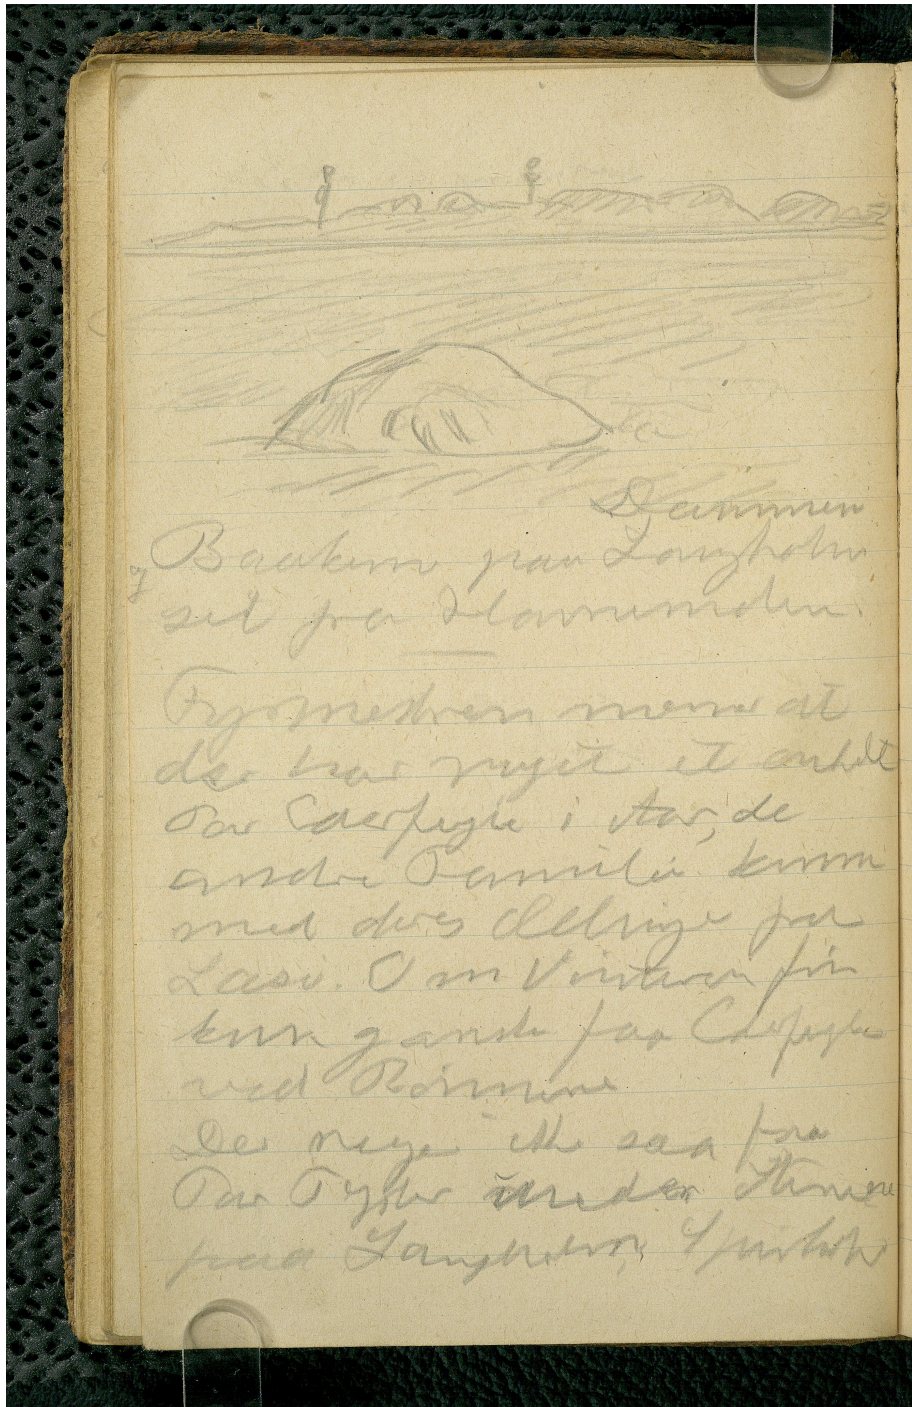 Dammen
Baaken paa Langholm
set fra Havnemolen.
Fyrmesteren mener at
der har ruget et enkelt
Par Ederfugle i Aar, de
andre Familier kommer
med deres Ællinger fra
Læsø. Om Vinteren
kun ganske faa Ederfugle
ved Rønnerne
Der ruger ikke saa faa
Par Tejster under Stenene
paa Langholm,